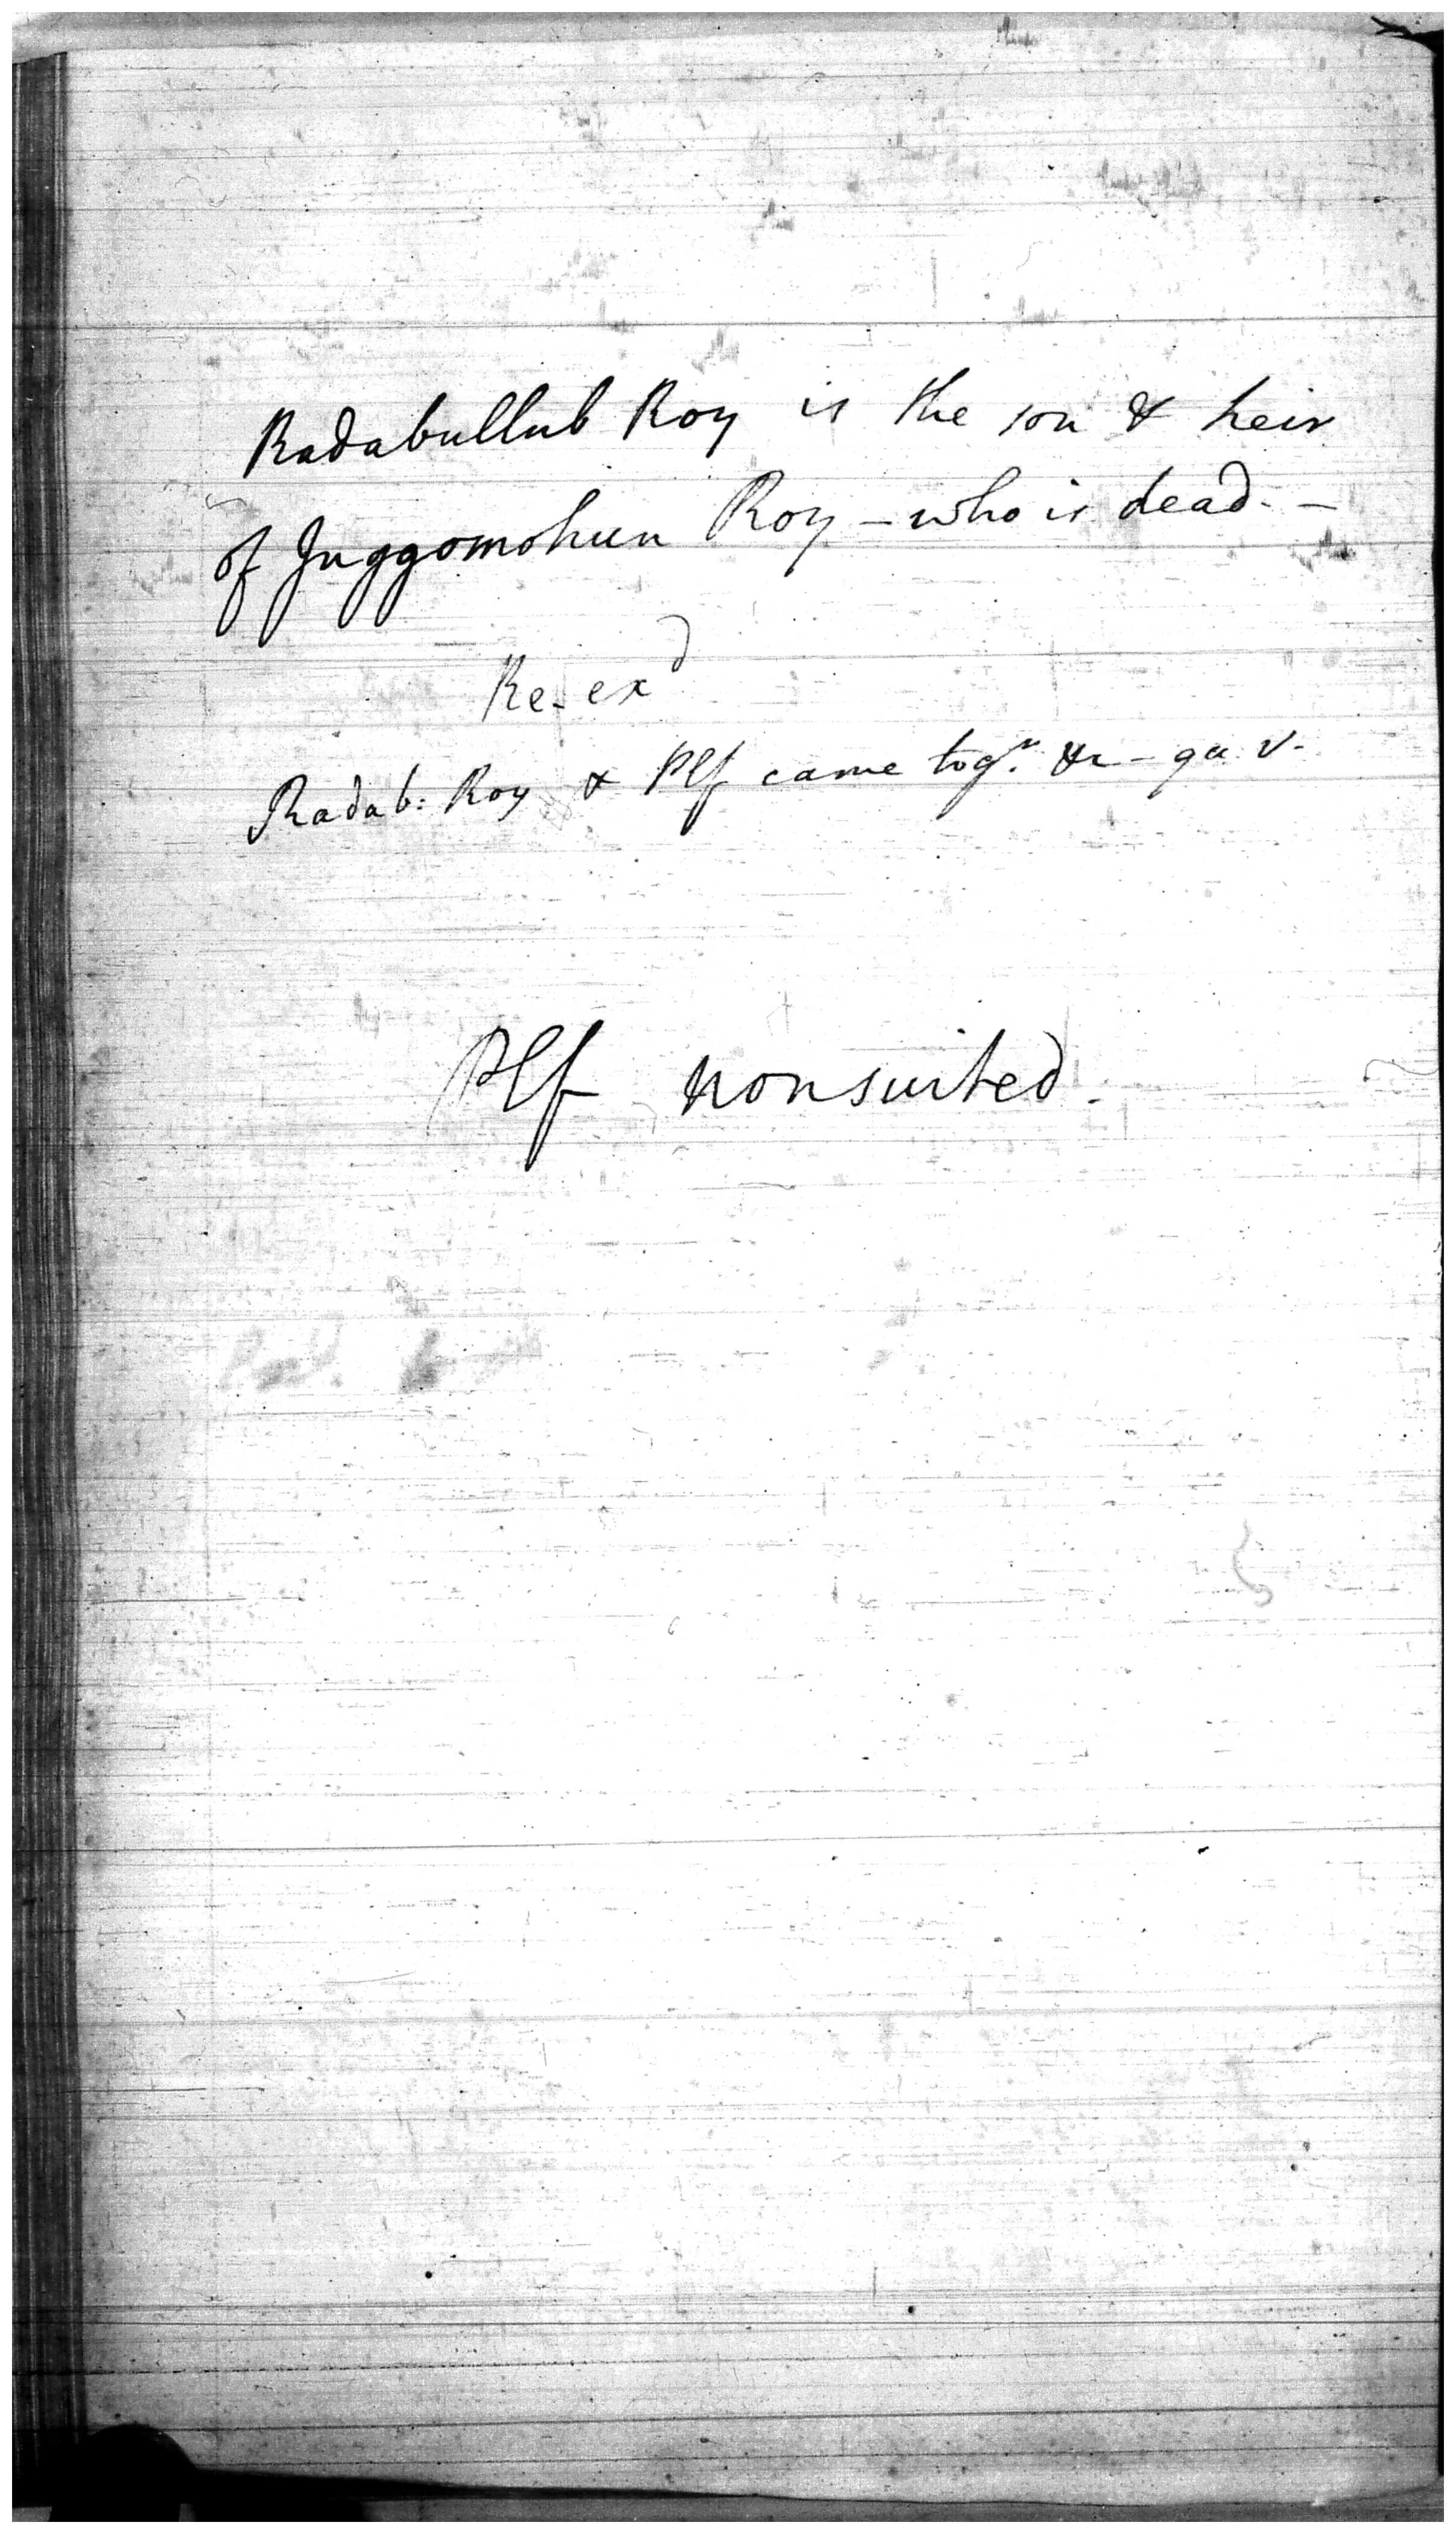 Radabullub Roy is the son & heir
of Juggomohun Roy - who is dead. -
Re-exd
Radab: Roy & Plf came togr. &c - qu V.
Plf nonsuited.